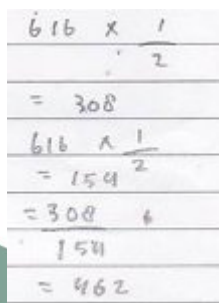 616 x 1/2
= 308
616 x 1/2
= 154
= 308
154
= 462